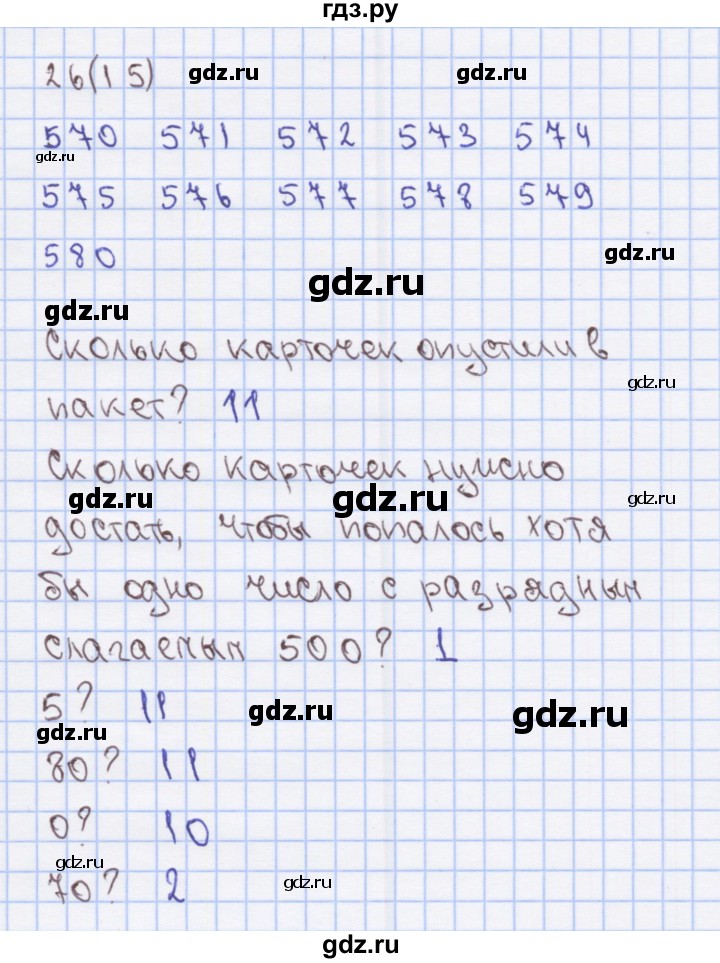 гдз.ру
26(15)
gdz.ru gdz.ru
570 571 572 573 574
gdz.ru
575 576 577 578 579
580
gdz.ru
gdz.ru
gdz.ru
Сколько карточек опустили в
gdz.ru
пакет? 11
Сколько карточек нужно
gdz.ru gdz.ru gdz.ru
достать, чтобы попалось хотя
бы одно число с разрядным
слагаемым 500? 1
5? 11
gdz.ru gdz.ru
gdz.ru
80? 11
0? 10
gdz.ru
70? 2
gdz.ru
gdz.ru